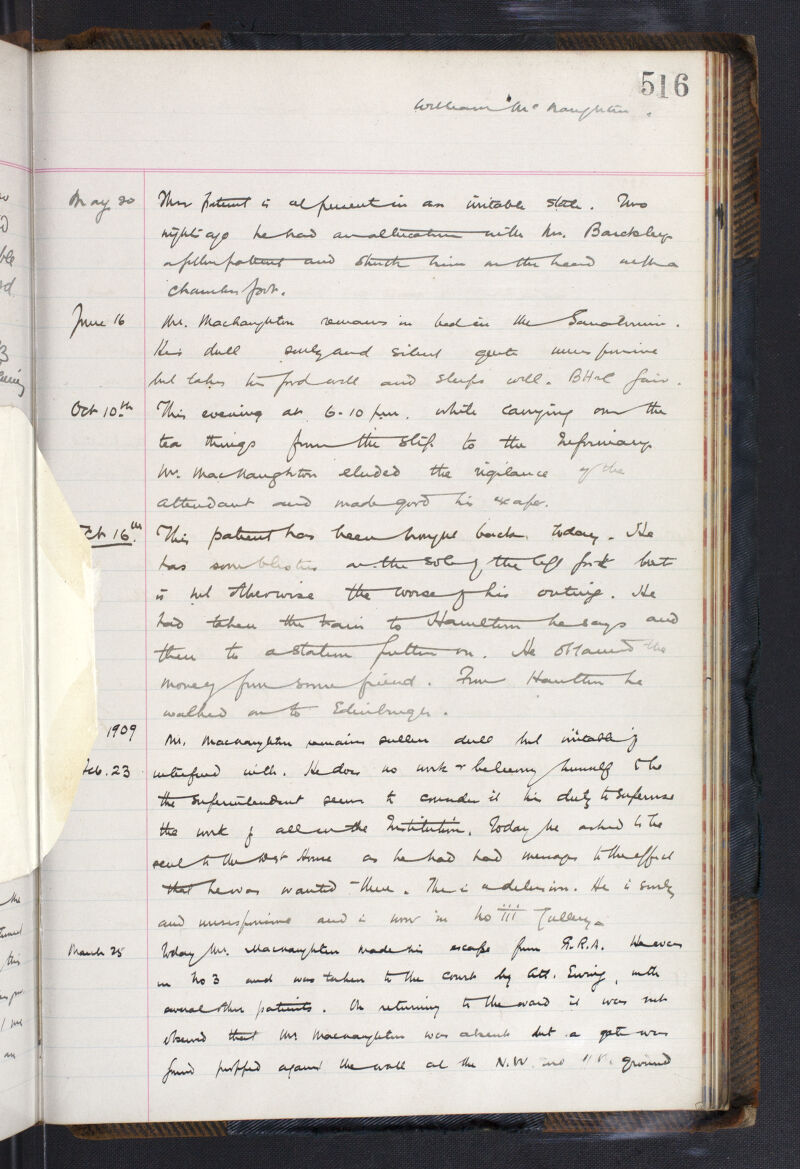 516
William McNaughton.
May 20 This patient is at present in an irritable state. Two
nights ago he had an altercation with Mr. Barckley
a fellow patient and struck him on the head with a
chamber pot.
June 16 Mr. Macnaughton remains in bed in the Sanatorium.
He is dull surly and silent quite unresponsive
but takes his food well and sleeps well. BH+C fair.
Oct 10th This evening at 6-10 p.m. while carrying over the
tea things from the to the Infirmary
Mr. MacNaughton eluded the vigilance of the
attendant and made good his escape.
Oct 16th. This patient has been brought back today. He
has some blisters on the sole of the left foot but
is not otherwise the worse of his outing. He
had taken the train to Hamilton he says and
then to a station further on. He obtained the
money from some friend. From Hamilton he
walked on to Edinburgh.
1909 Mr. Macnaughton remains sullen dull but irritable if
Feb. 23 interfered with. He does no work & believing himself to be
the Superintendent seems to consider it his duty to supervise
the work of all in the Institution. Today he asked to be
sent to the West House as he had had messages to the effect
that he was wanted there. This is a delusion. He is surly
and unresponsive and is now in No III Gallery.
March 25 Today Mr. Macnaughton made his escape from G.R.A. He was
in No 3 and was taken to the court by Att. Ewing, with
several other patients. On returning to the ward it was not
observed that Mr Macnaughton was absent but a gate was
found propped against the wall at the N.W. ground